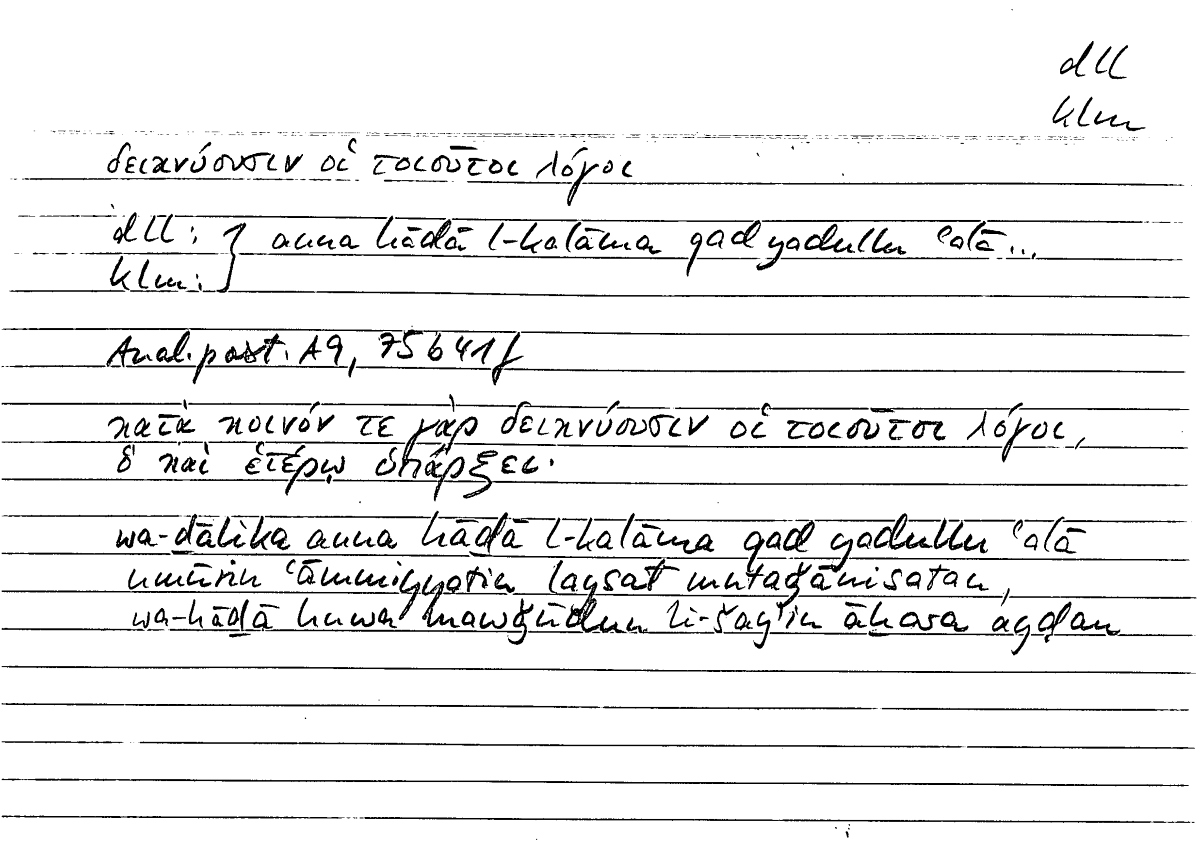 dll
klm
δεικνύουσιν οἱ τοιοῦτοι λόγοι
dll: } anna hāḏā l-kalāma qad yadullu ʿalā...
klm:
Anal. post. A9, 75 b 41 f
κατὰ κοινόν τε γὰρ δεικνύουσιν οἱ τοιοῦτοι λόγοι,
ὃ καὶ ἑτέρῳ ὑπάρξει·
wa-ḏālika anna hāḏā l-kalāma qad yadullu ʿalā
umūrin ʿāmmiyyatin laysat mutaǧānisatan,
wa-hāḏā huwa mawǧūdun li-šayʾin āḫara ayḍan